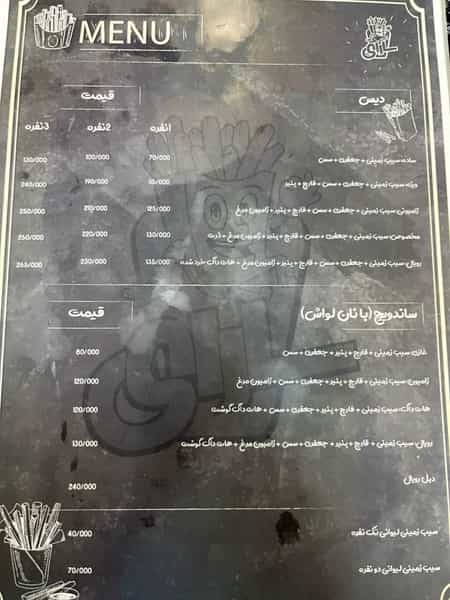 MENU
دیس
قیمت
1نفره 2نفره 3نفره
ساده: سیب زمینی + جعفری + سس 70/000 100/000 130/000
ویژه: سیب زمینی + جعفری + سس + قارچ + پنیر 190/000 240/000
ژامبونی: سیب زمینی + جعفری + سس + قارچ + پنیر + ژامبون مرغ 125/000 210/000 250/000
مخصوص: سیب زمینی + جعفری + سس + قارچ + پنیر + ژامبون مرغ + ذرت 130/000 220/000 260/000
رویال: سیب زمینی + جعفری + سس + قارچ + پنیر + ژامبون مرغ + هات داگ خرد شده 135/000 230/000 265/000
ساندویچ (با نان لواش)
قیمت
سیب زمینی + قارچ + پنیر + جعفری + سس 80/000
ژامبون: سیب زمینی + قارچ + پنیر + جعفری + سس + ژامبون مرغ 120/000
هات داگ: سیب زمینی + قارچ + پنیر + جعفری + سس + هات داگ گوشت 120/000
رویال: سیب زمینی + قارچ + پنیر + جعفری + سس + ژامبون مرغ + هات داگ گوشت 130/000
دبل رویال 240/000
سیب زمینی لیوانی تک نفره 40/000
سیب زمینی لیوانی دو نفره 70/000